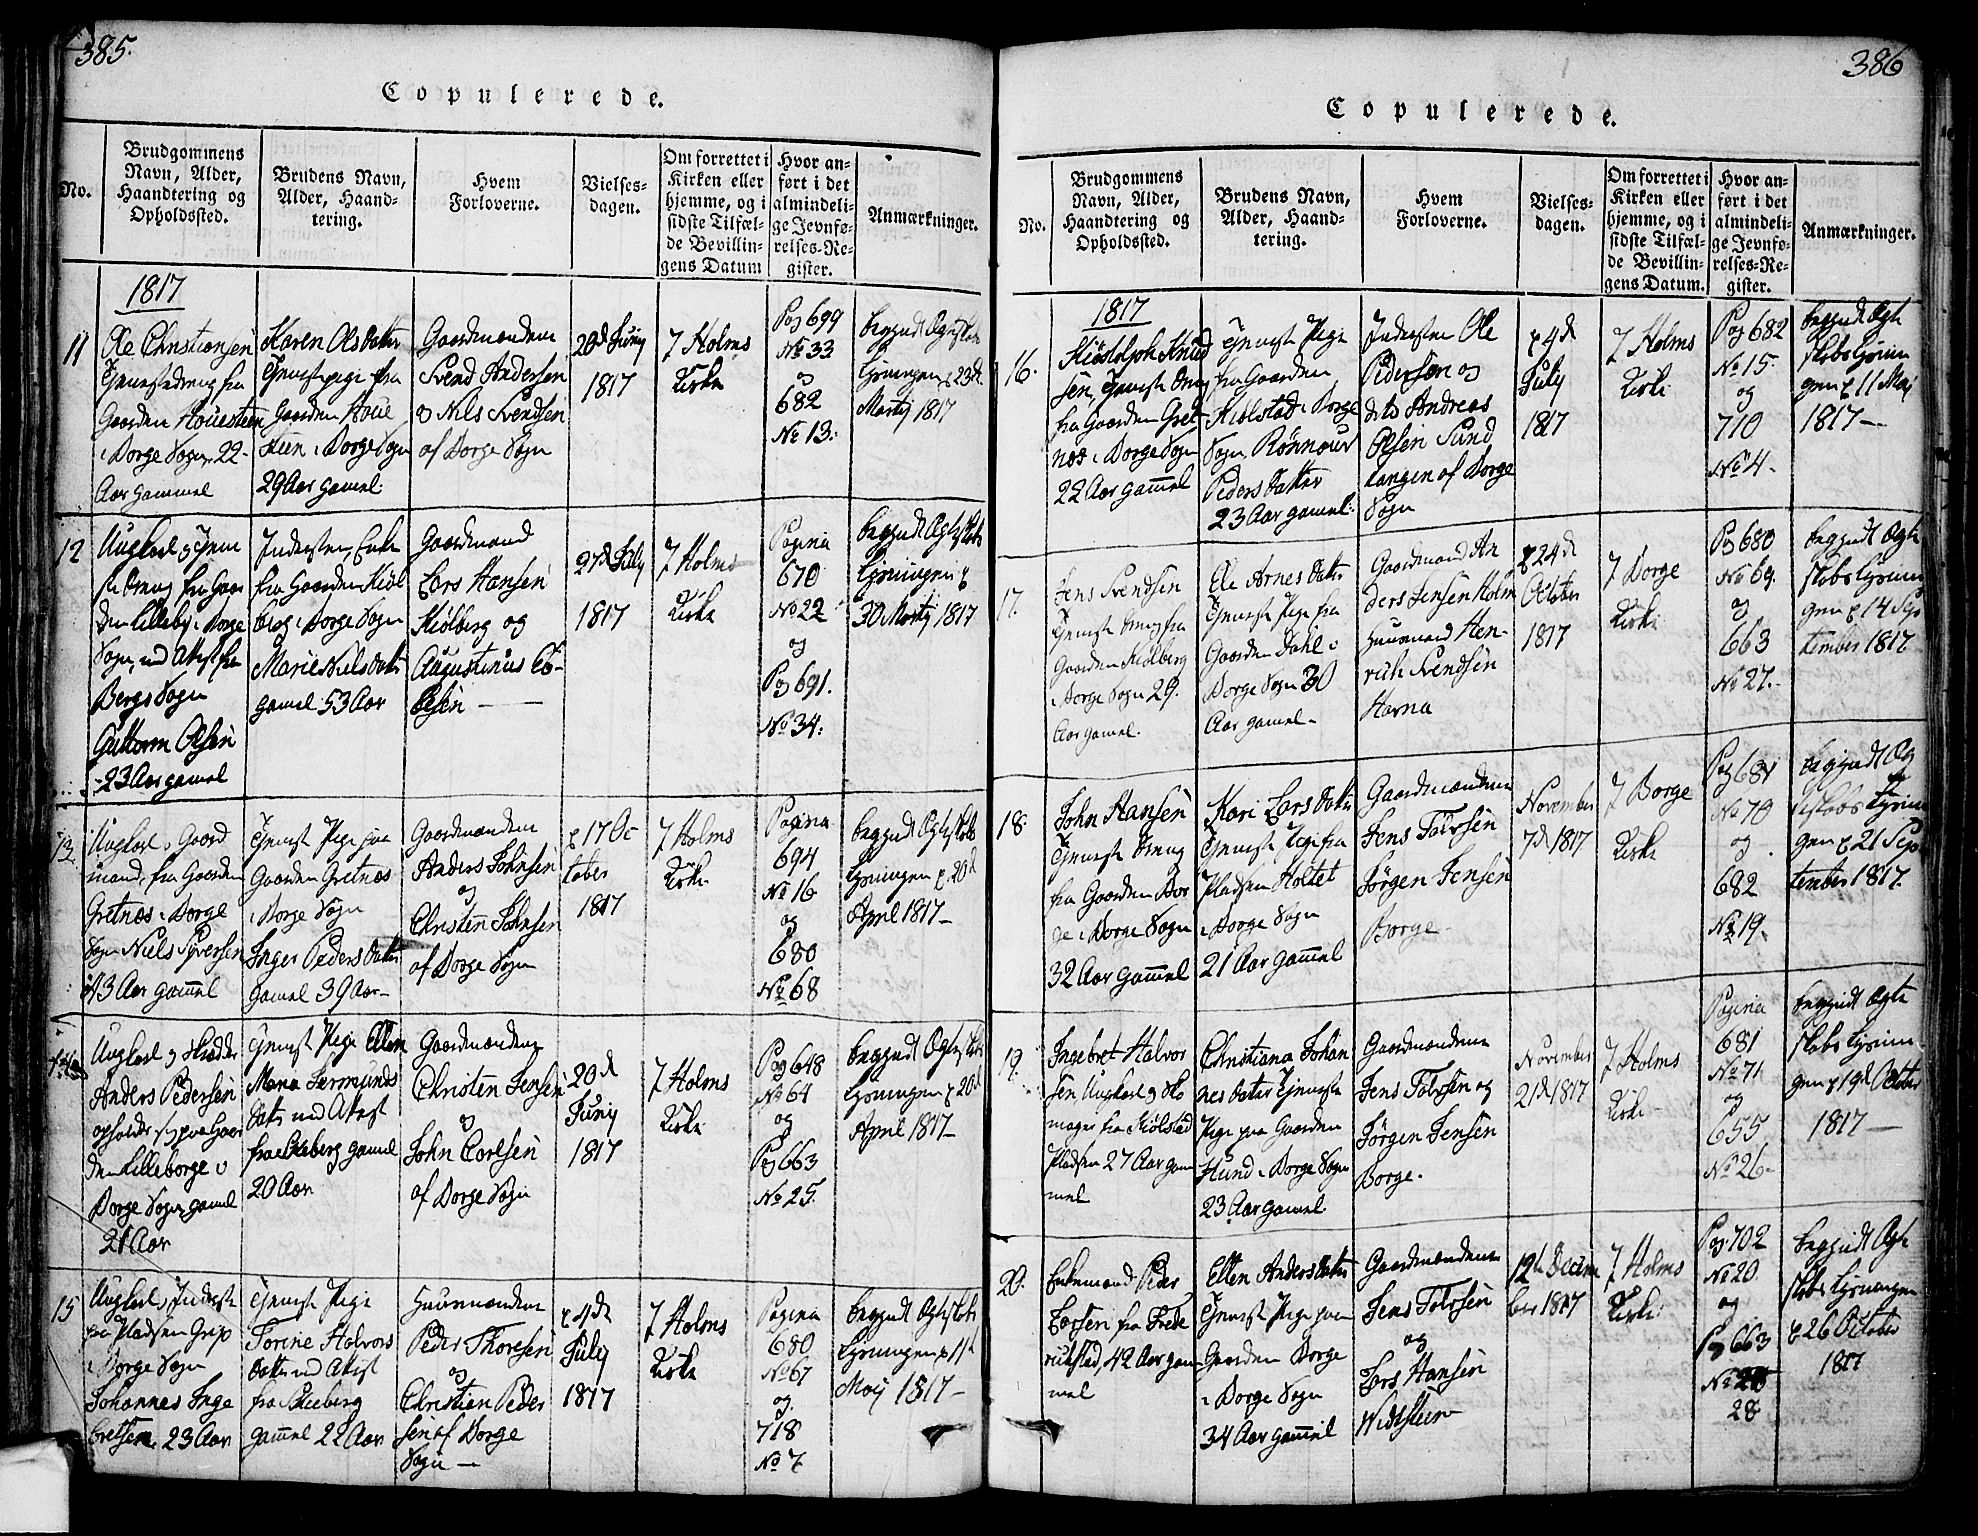 385.
Copulerede.
No.
Brudgommens
Navn, Alder,
Haandtering og
Opholdssted.
Brudens Navn,
Alder, Haand-
tering.
Hvem
Forloverne.
Vielses-
dagen.
Om forrettet i
Kirken eller
hjemme, og i
sidste Tilfæl-
de Bevillin-
gens Datum
Hvor an-
ført i det
almindeli-
ge Jevnfø-
relses-Re-
gister.
Anmærkninger.
1817
11
Ole Christiansen
Tjenestedreng fra
Gaarden Houesteen
i Borge Sogn, 22
Aar gammel
Karen Olsdatter
Tjeneste pige fra
Gaarden Houe
steen i Borge Sogn
29 Aar gamel.
Gaardmændene
Svend Andersen
og Nils Svendsen
af Borge Sogn
20d Juny
1817
I Holms
Kirke
Pag 699
No 33
og
682
No 13.
begyndt Ægteskabs
Lysningen d. 23d
Martij 1817
12
Ungkarl og Tjene
ste dreng fra Gaar
den Lilleby i Borge
Sogn, ved Attest fra
Bergs Sogn
Guttorm Olsen
23 Aar gamel
Inderste Enke
fra Gaarden Kiøl
berg i Borge Sogn
Marie Nielsdatter
gamel 53 Aar
Gaardmand
Lars Hansen
Kiølberg og
Augustinus
Olsen
27d July
1817
I Holms
Kirke
Pagina
670
No 22
og
Pag 691.
No 34.
begyndt Ægteskabs
Lysningen d
30 Martij 1817
13
Ungkarl og Gaard
mand, fra Gaarden
Gretnæs i Borge
Sogn Niels Syversen
43 Aar gammel
Tjeneste Pige paa
Gaarden Gretnæs
i Borge Sogn
Inger Pedersdatter
gamel 39 Aar
Gaardmændene
Anders Johnsen
og
Christen Johnsen
af Borge Sogn
d 17 Oc
tober
1817
I Holms
Kirke
Pagina
694
No 16
og
680
No 68
begyndt Ægteskabs
Lysningen d. 20d
April 1817
14
Ungkarl og Skredder
Anders Pedersen
opholder sig paa Gaar
den Lilleborge i
Borge Sogn, gamel
21 Aar
Tjeneste Pige Ellen
Maria Germunds
datter ved Attest
fra Skeberg gamel
20 Aar
Gaardmændene
Christen Jensen
og
John Carlsen
af Borge Sogn
20d
Juny
1817
I Holms
Kirke
Pag 648
No 64
og
Pag 663
No 25.
begyndt Ægteskabs
Lysningen d 20d
April 1817
15
Ungkarl og Inderste
paa Pladsen Grip
i Borge Sogn
Johannes Inge
bretsen, 23 Aar
Tjeneste Pige
Torine Halvors
datter ved Attest
fra Skeeberg
gammel 22 Aar
Huusmændene
Peder Thoresen
og
Christen Peder
sen af Borge
Sogn
d 4de
July
1817
I Holms
Kirke
Pagina
680
No 67
og
718
No 7
begyndt Ægteskabs
Lysningen d 11t
Maij 1817
386
Copulerede.
No.
Brudgommens
Navn, Alder,
Haandtering og
Opholdssted.
Brudens Navn,
Alder, Haand-
tering.
Hvem
Forloverne.
Vielses-
dagen.
Om forrettet i
Kirken eller
hjemme, og i
sidste Tilfæl-
de Bevillin-
gens Datum.
Hvor an-
ført i det
almindeli-
ge Jevnfø-
relses-Re-
gister.
Anmærkninger.
1817
16.
Kiøstolph Knud
sen, Tjeneste dreng
fra Gaarden Gret
næs i Borge Sogn
22 Aar gammel
Tjeneste Pige
fra Gaarden
Kiølstad i Borge
Sogn, Rønnour
Peders datter
23 Aar gammel.
Indersten Ole
Pedersen og
dito Andreas
Olsen Sund
tangen af Borge
Sogn
d 4de
July
1817
I Holms
Kirke
Pag 682
No 15.
og
710
No 4.
begyndt Ægte
skabs Lysnin
gen d 11 Maj
1817
17.
Jens Svendsen
Tjeneste dreng fra
Gaarden Kiølberg
i Borge Sogn 29.
Aar gamel.
Ele Arnesdatter
Tjeneste Pige fra
Gaarden Dahl i
Borge Sogn 30
Aar gamel
Gaardmand An
ders Jensen Holm
Huusmand Hen
rich Svendsen
Havna
d 24de
October
1817
I Borge
Kirke
Pag 680
No 69.
og
663
No 27.
begyndt Ægte
skabs Lysnin
gen d 14 Sep
tember 1817
18.
John Hansen
Tjeneste dreng
fra Gaarden Bor
ge i Borge Sogn
32 Aar gammel
Kari Larsdatter
Tjeneste Pige fra
Pladsen Holtet
i Borge Sogn
21 Aar gammel
Gaardmændene
Jens Tolvsen
Jørgen Jensen
Borge
November
7d 1817
I Borge
Kirke
Pag 681
No 70
og
682
No 19.
begyndt Æg
teskabs Lysnin
gen d 21 Sep
tember 1817.
19.
Ingebret Halvor
sen Ungkarl og Sko
mager fra Kiølstad
Pladsen 27 Aar gam
mel
Christiana Johan
nesdatter Tjeneste
Pige paa Gaarden
Hund i Borge Sogn
23 Aar gamel
Gaardmændene
Jens Tolvsen og
Jørgen Jensen
Borge.
November
21d 1817
I Holms
Kirke
Pagina
681
No 71
og
655
No 26
begyndt Ægte
skabs Lysnin
gen d 19d October
1817
20.
Enkemand Peder
Larsen fra Frede
rikstad, 42 Aar gam
mel
Ellen Andersdatter
Tjeneste Pige paa
Gaarden Borge
i Borge Sogn
34 Aar gammel
Gaardmændene
Jens Tolvsen
og
Lars Hansen
Widsteen
12te Decem
ber 1817
I Holms
Kirke.
Pag. 702
No 20.
og
Pag 663
No 28
28
begyndt Ægte
skabs Lysningen
d 26 October
1817